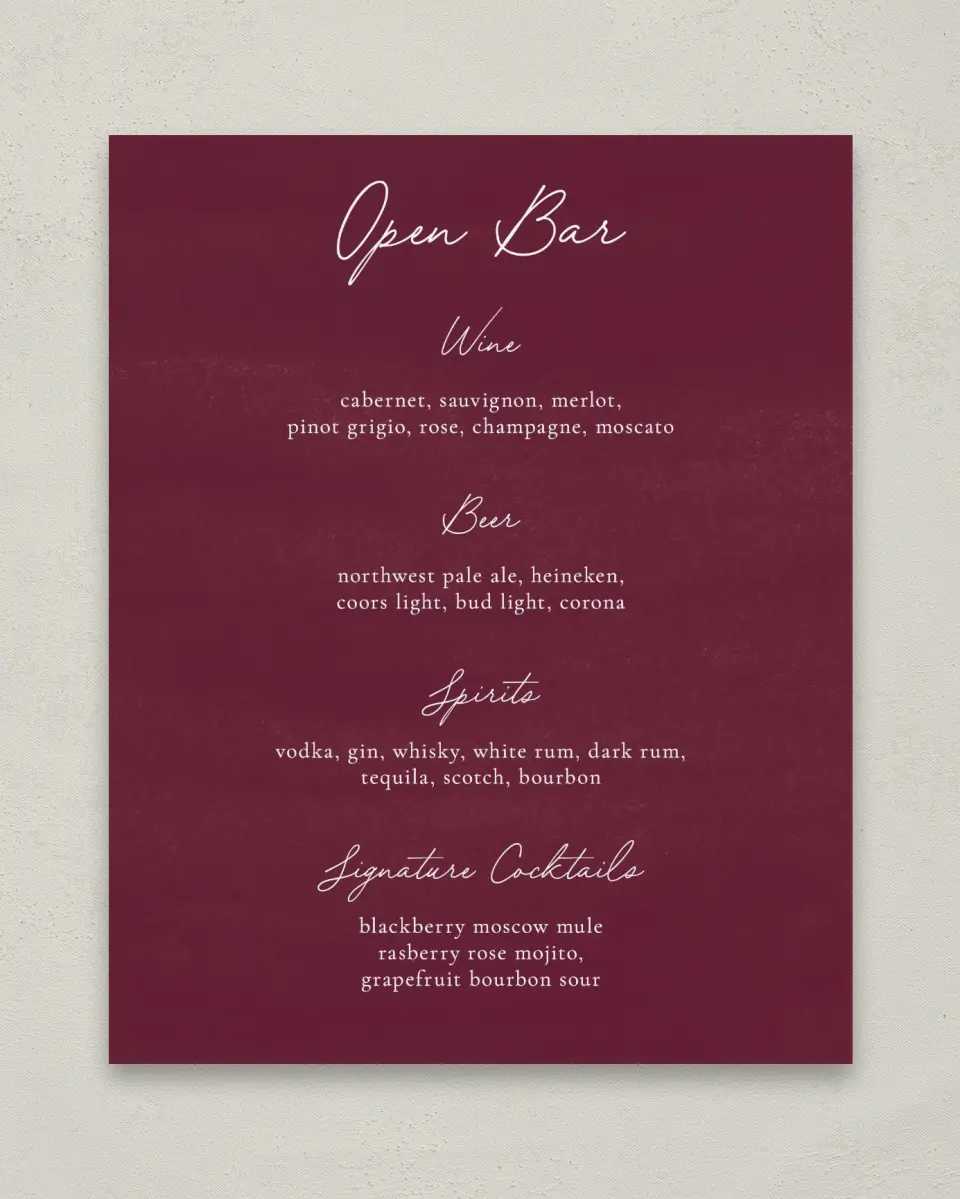 Open Bar
Wine
cabernet, sauvignon, merlot,
pinot grigio, rose, champagne, moscato
Beer
northwest pale ale, heineken,
coors light, bud light, corona
Spirits
vodka, gin, whisky, white rum, dark rum,
tequila, scotch, bourbon
Signature Cocktails
blackberry moscow mule
rasberry rose mojito,
grapefruit bourbon sour